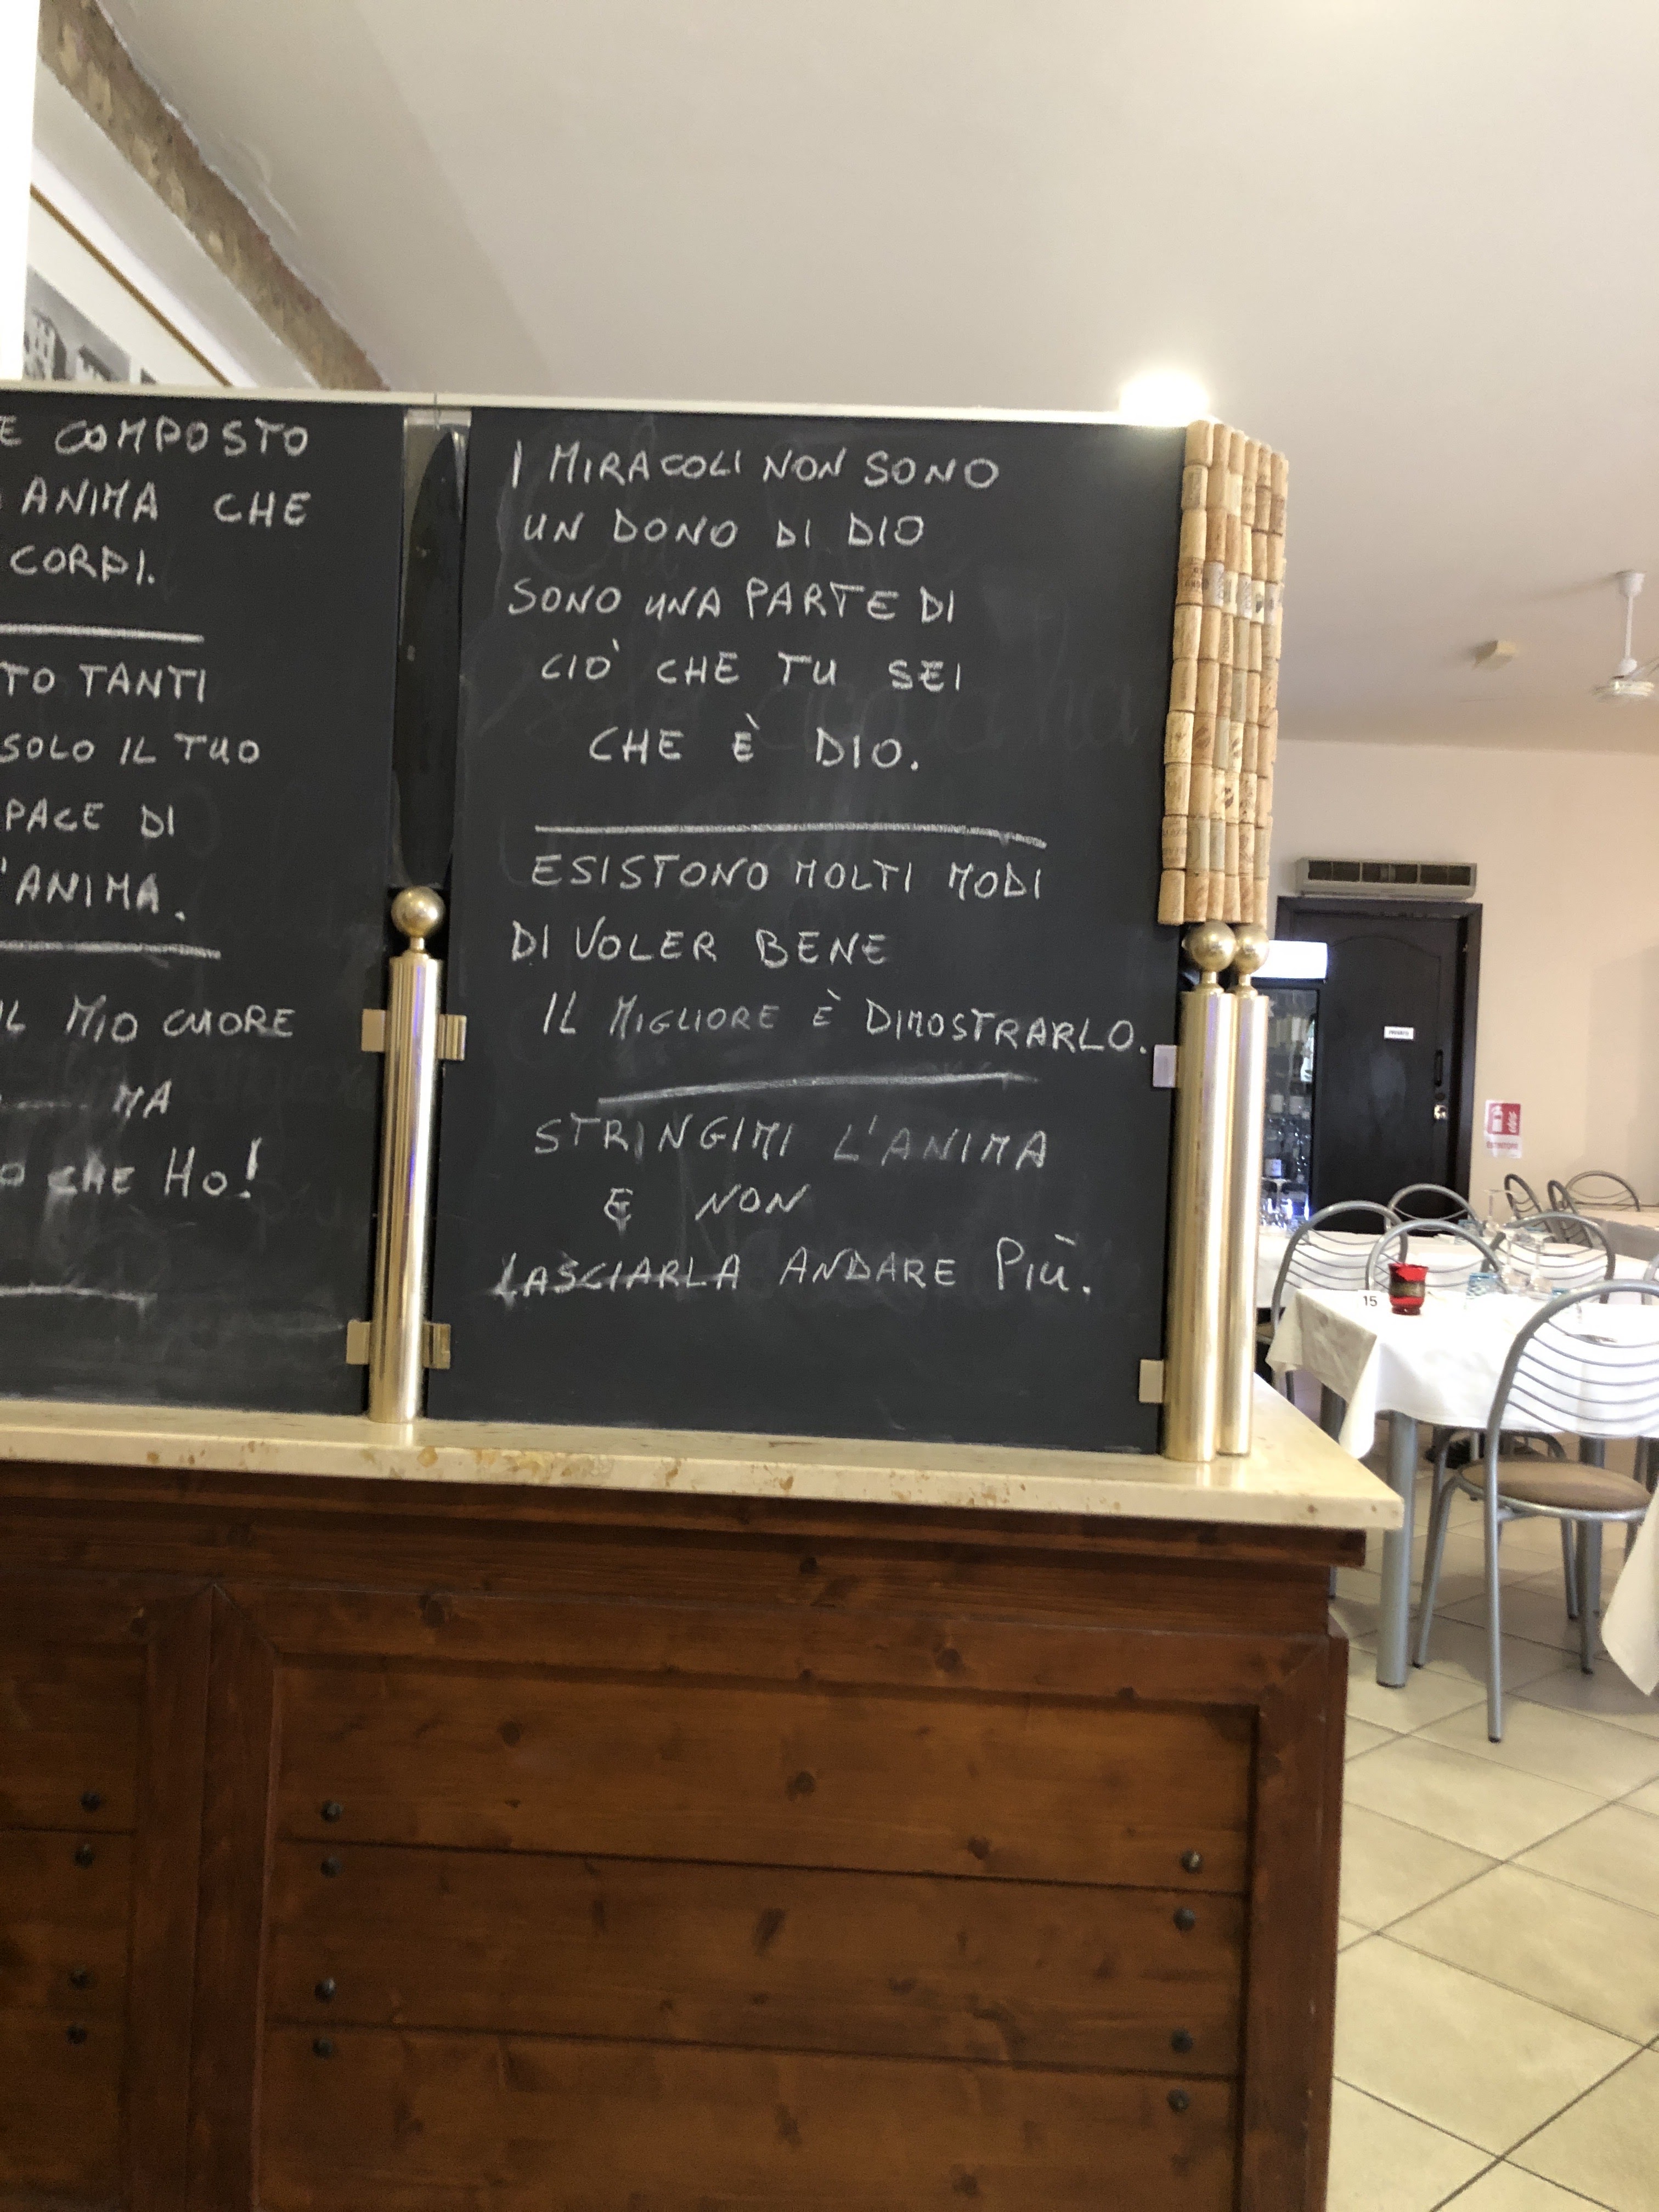 E COMPOSTO
ANIMA CHE
CORPI.
TO TANTI
SOLO IL TUO
PACE DI
'ANIMA.
IL MIO CUORE
MA
O CHE HO!
I MIRACOLI NON SONO
UN DONO DI DIO
SONO UNA PARTE DI
CIÒ CHE TU SEI
CHE È DIO.
ESISTONO MOLTI MODI
DI VOLER BENE
IL MIGLIORE È DIMOSTRARLO.
STRINGIMI L'ANIMA
E NON
LASCIARLA ANDARE PIÙ.
15